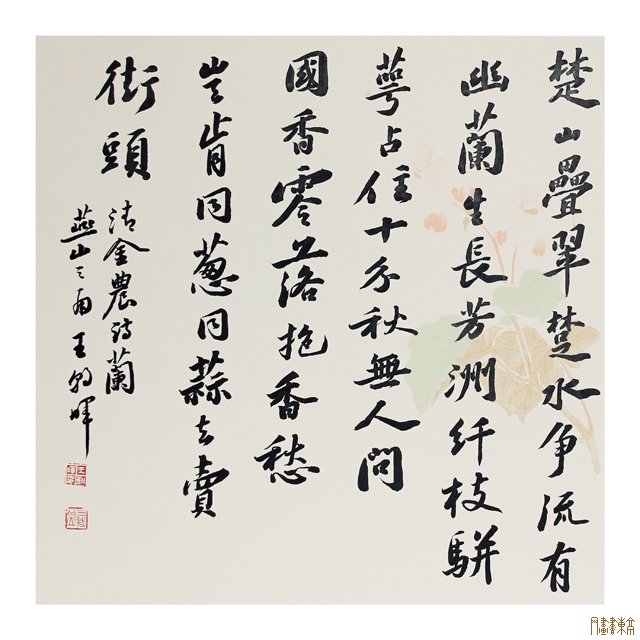 楚山疊翠楚水争流有
幽蘭生長芳洲纤枝駢
萼占住十分秋無人問
國香零落抱香愁
岂肯同葱同蒜去賣
街頭
清金農诗蘭
燕山之南王朝暉